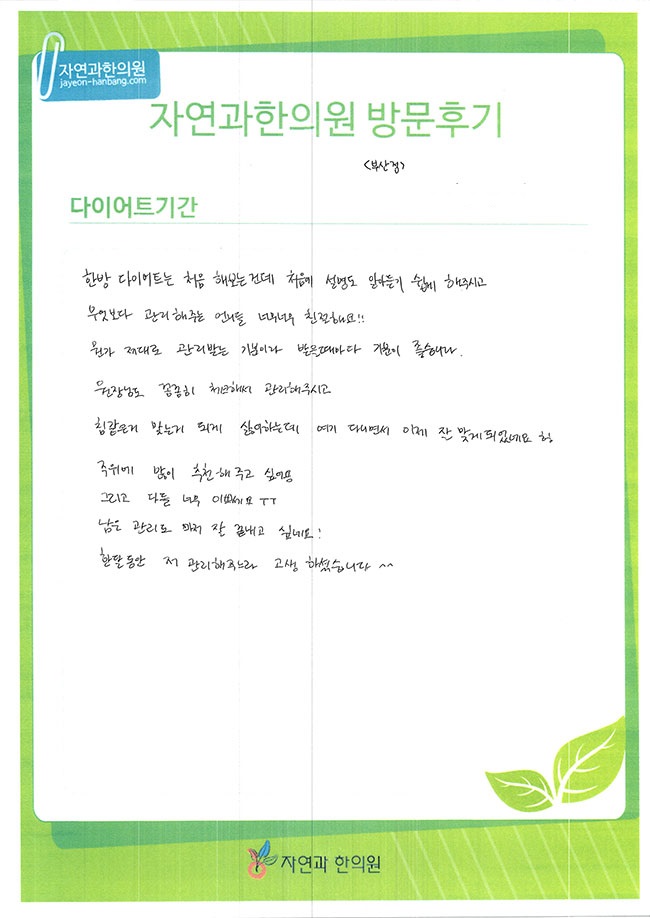 자연과한의원
jayeon-hanbang.com
자연과한의원 방문후기
<부산점>
다이어트기간
한방 다이어트는 처음 해보는건데 처음에 설명도 알아듣기 쉽게 해주시고
무엇보다 관리해주는 언니들 너무너무 친절해요!!
뭔가 제대로 관리받는 기분이라 받을때마다 기분이 좋습니다.
원장님도 꼼꼼히 체크해서 관리해주시고
침같은거 맞는거 되게 싫어하는데 여기 다니면서 이제 잘 맞게되었네요 헝
주위에 많이 추천해주고 싶어용
그리고 다들 너무 이쁘세요 ㅜㅜ
남은 관리도 마저 잘 끝내고 싶네요!
한달동안 저 관리해주느라 고생 하셨습니다 ^^
자연과 한의원